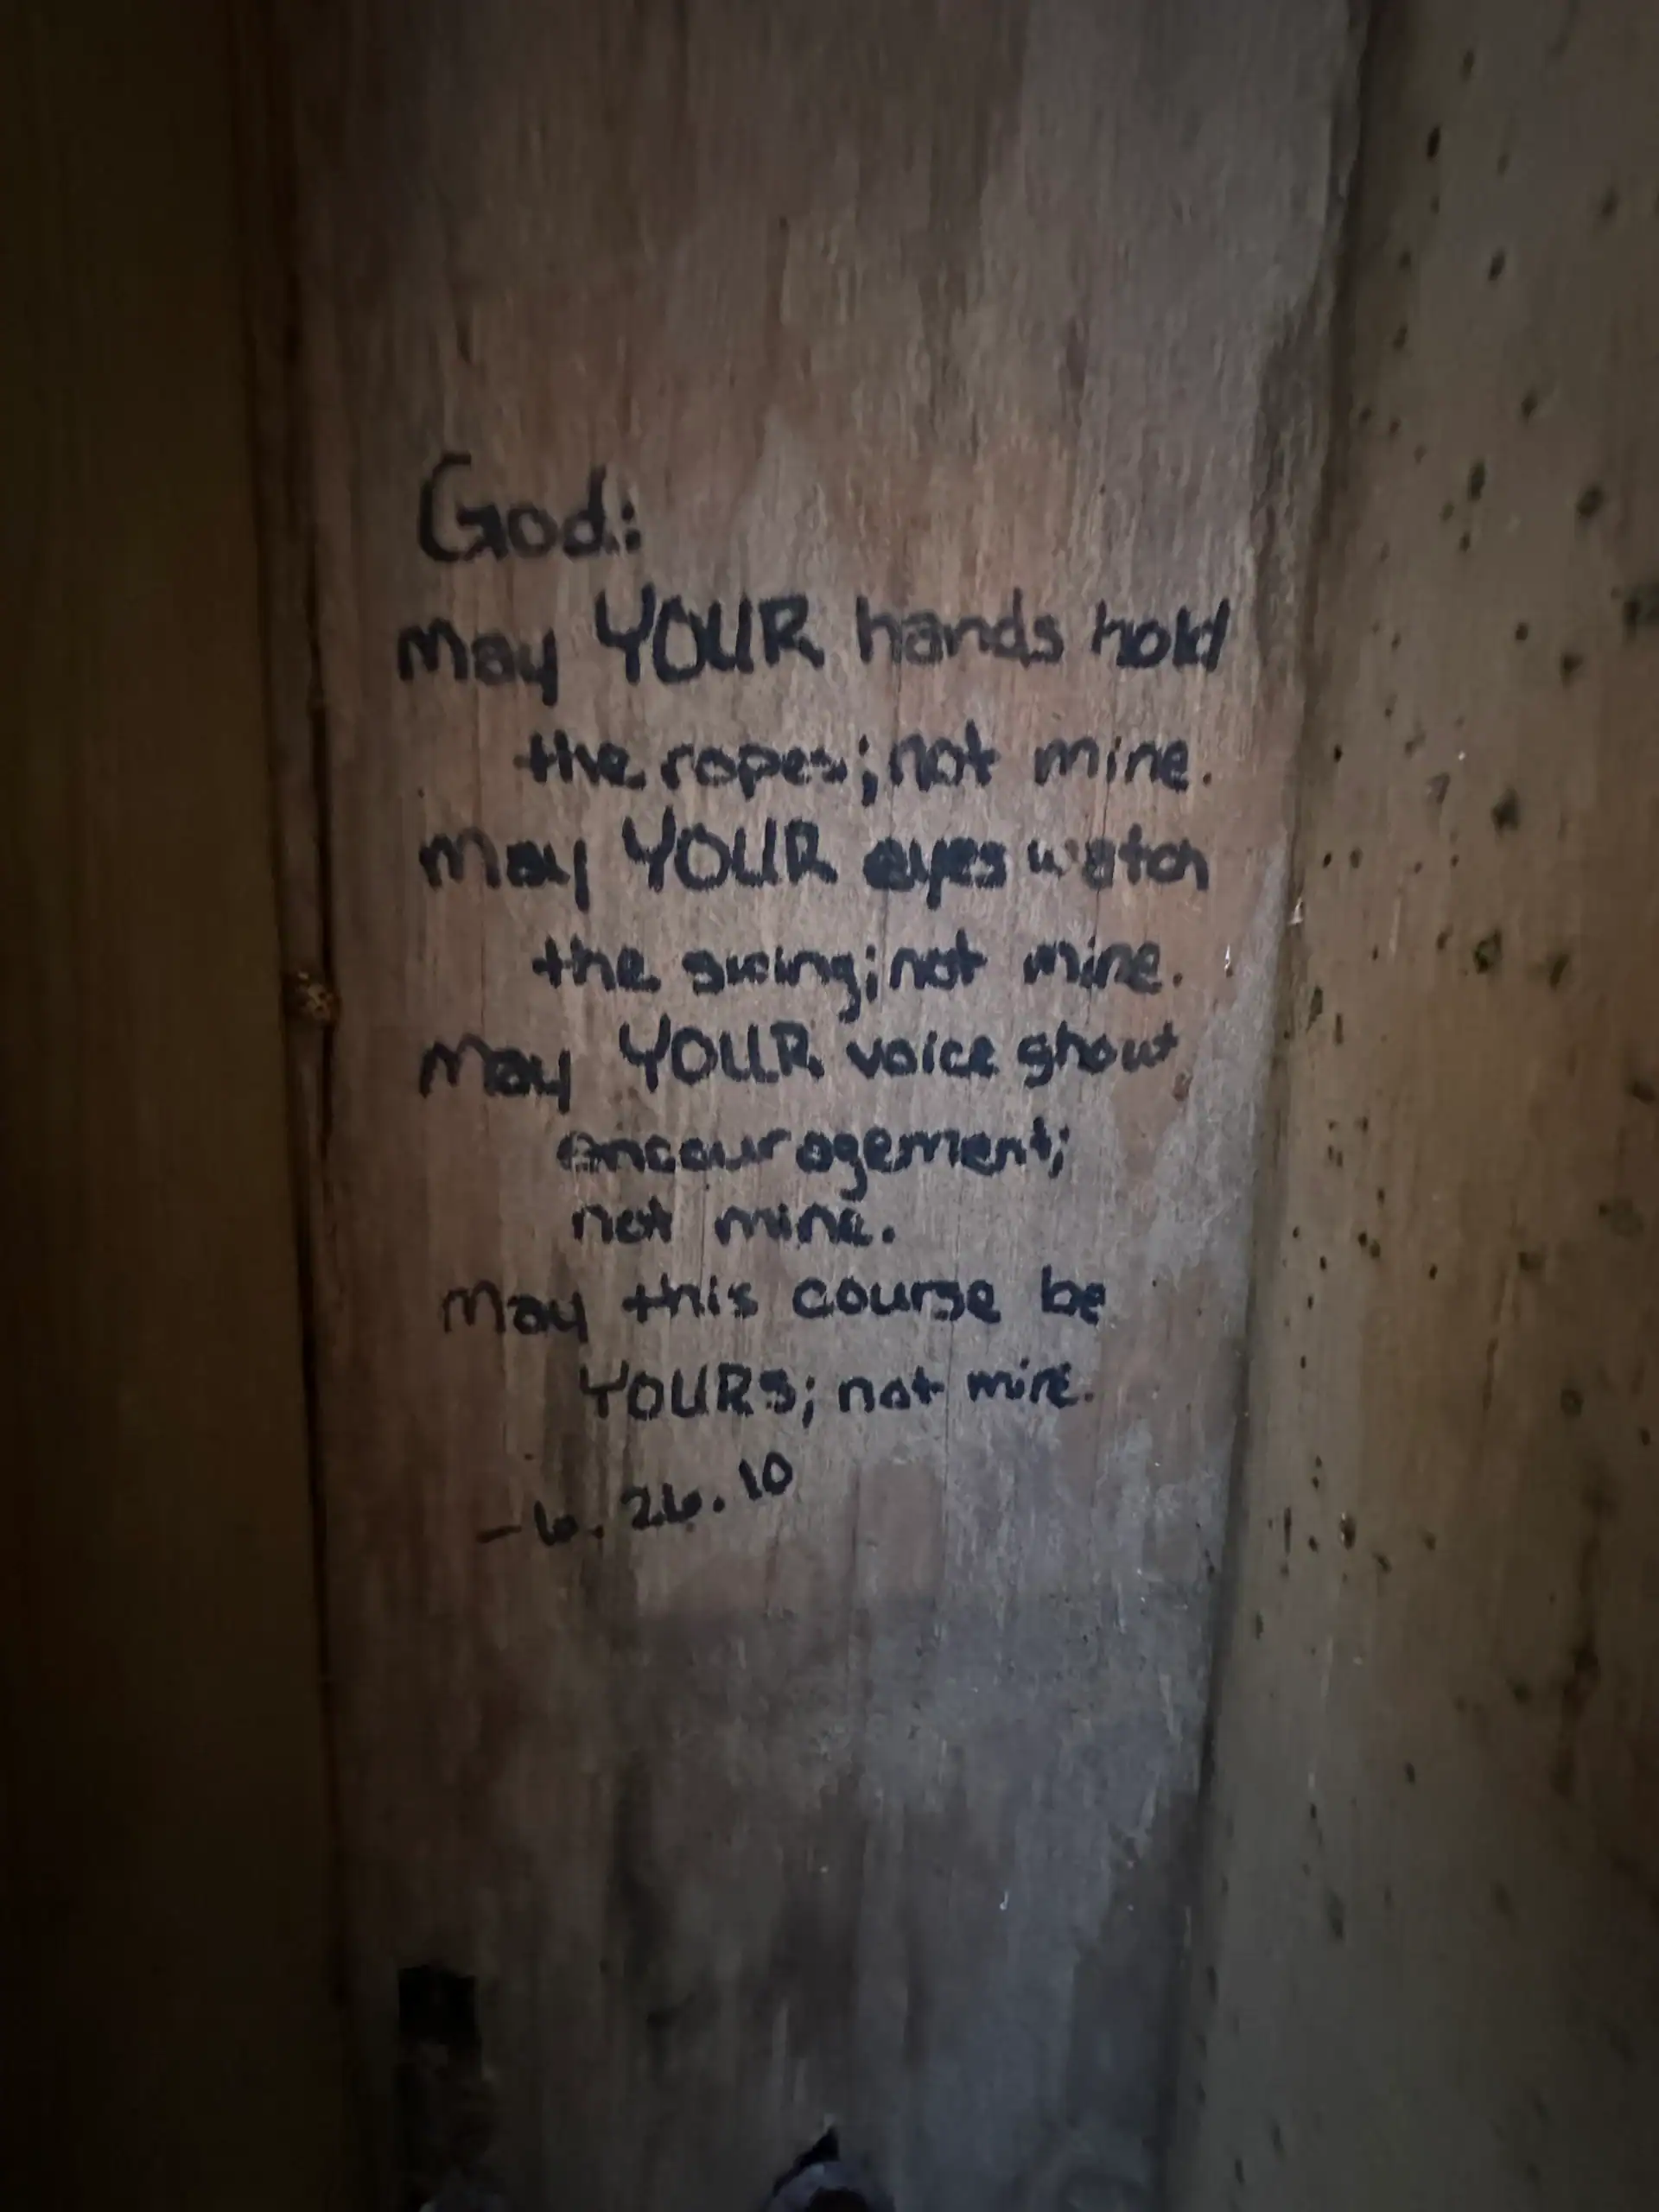 God:
may YOUR hands hold
the ropes; not mine.
may YOUR eyes watch
the swing; not mine.
may YOUR voice shout
encouragement;
not mine.
may this course be
YOURS; not mine.
- 6.26.10